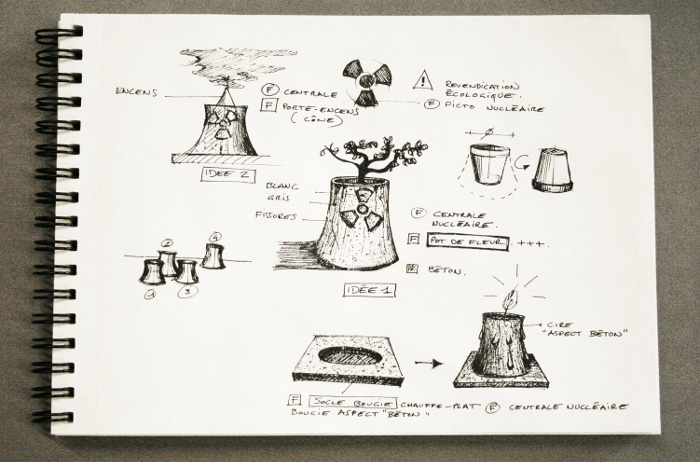 ENCENS
(F) CENTRALE
[F] PORTE-ENCENS
(CÔNE)
IDEE 2
! REVENDICATION
ÉCOLOGIQUE.
(F) PICTO NUCLÉAIRE
BLANC
GRIS
FISSURES
(F) CENTRALE
NUCLÉAIRE.
[F] POT DE FLEUR +++.
BÉTON.
IDÉE 1
1
2
3
4
CIRE
"ASPECT BÉTON"
[F] SOCLE BOUGIE CHAUFFE-PLAT
BOUGIE ASPECT "BÉTON"
(F) CENTRALE NUCLÉAIRE